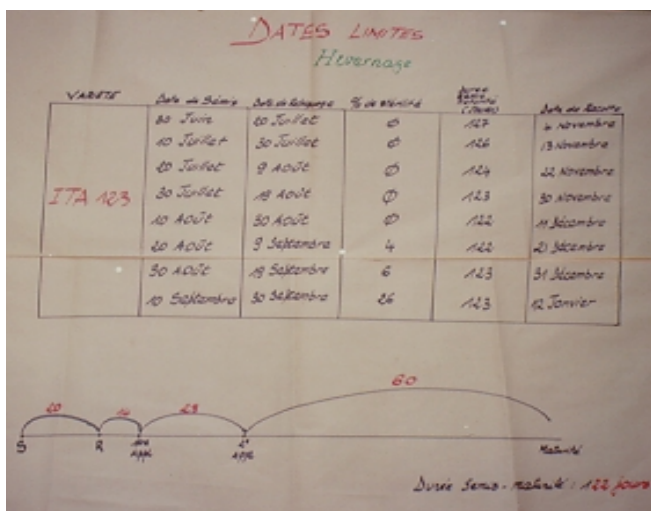 DATES LIMITES
Hivernage
VARIETE Date de Semis Date de Repiquage % de stérilité Durée Semis Maturité (Jours) Date de Récolte
30 Juin 20 Juillet Ø 127 4 Novembre
10 Juillet 30 Juillet Ø 126 13 Novembre
20 Juillet 9 Août Ø 124 22 Novembre
ITA 123 30 Juillet 19 Août Ø 123 30 Novembre
10 Août 30 Août Ø 122 11 Décembre
20 Août 9 Septembre 4 122 21 Décembre
30 Août 19 Septembre 6 123 31 Décembre
10 Septembre 30 Septembre 26 123 12 Janvier
60
20 14 28
S R Appl 2e Appl Maturité
Durée Semis - maturité : 122 jours